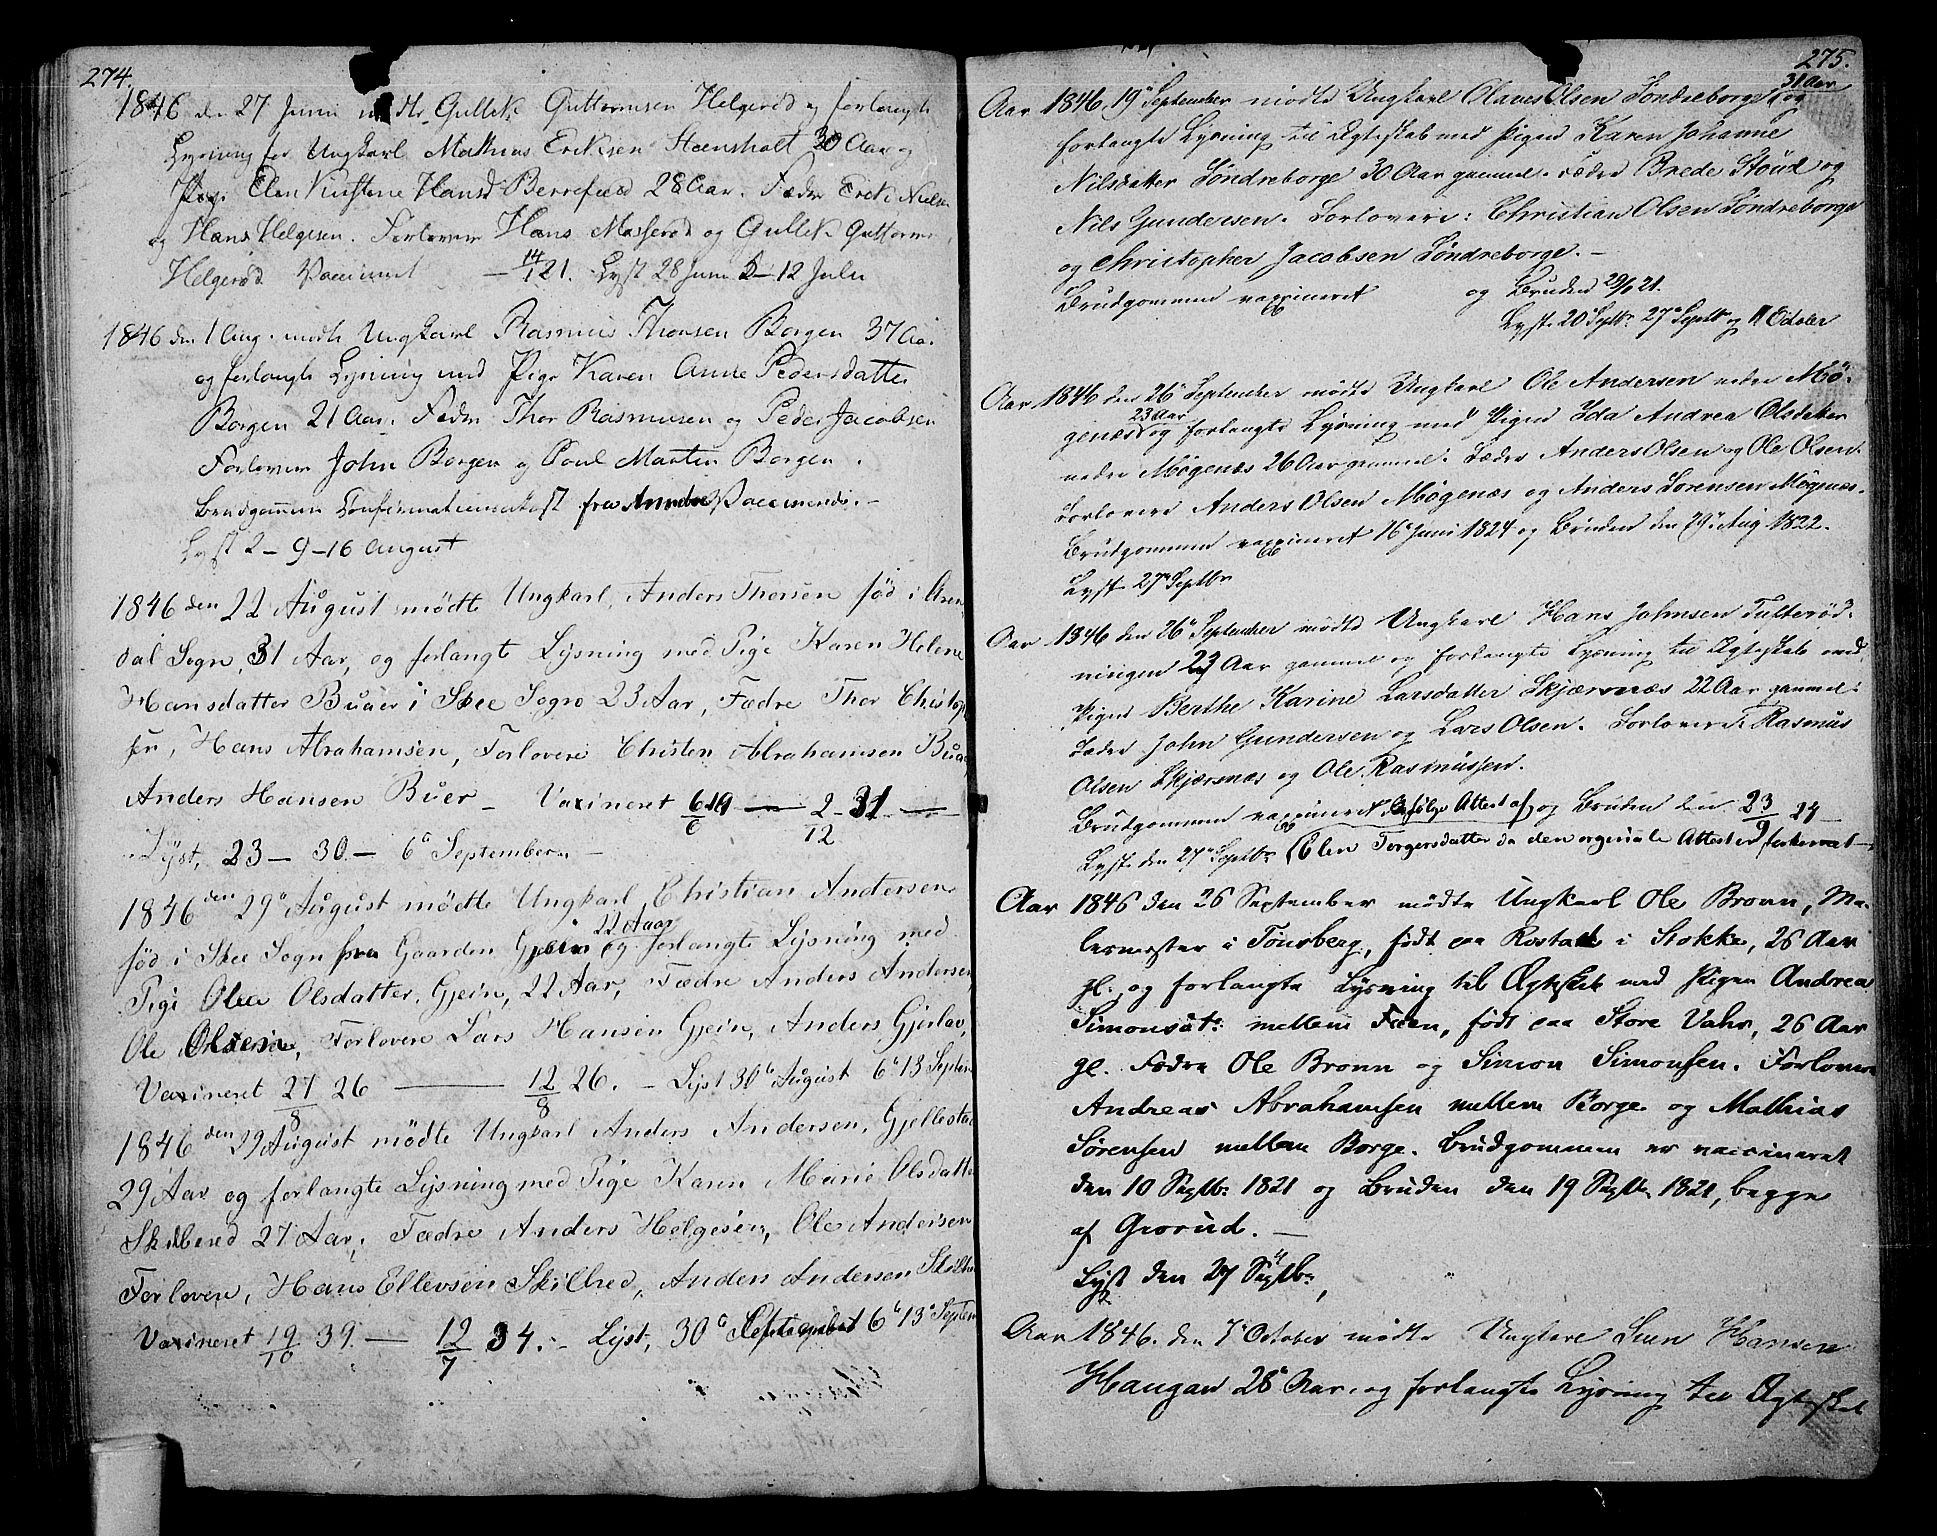 274.
1846 den 27 Juni mødte Gullek Guttormsen Helgerød og forlangte
Lysning for Ungkarl Mathias Eriksen Steensholt 30 Aar og
Pige Elen Kirstine Hansd Berrefied 28 Aar. Fædre Erik Nielsen
og Hans Helgesen. Forlovere Hans Masserød og Gullek Guttorms
Helgerød Vaccineret — 14/1 21. Lyst 28 Juni 5 – 12 Julii
1846 den 1 Aug. mødte Ungkarl Rasmus Thorsen Borgen 37 Aa.
og forlangte Lysning med Pige Karen Anne Pedersdatter
Borgen 21 Aar. Fædre Thor Rasmusen og Peder Jacobsen
Forlovere John Borgen og Poul Martin Borgen.
Brudgommens Confirmationsattest fra Vaccinerede. —
Lyst 2 – 9 – 16 August
1846 den 22 August mødte Ungkarl, Anders Thorsen fød i Aren
dal Sogn, 31 Aar, og forlangt Lysning med Pige Karen Helene
Hansdatter Buaer i Skee Sogn 23 Aar, Fædre Thor Christop
fer, Hans Abrahamsen, Forlovere Christen Abrahamsen Bua
Anders Hansen Buer — Vaxineret 6/6 19 — 2/12 31 —
Lyst, 23 — 30. — 6te September —
1846 den 29de August mødte Ungkarl Christian Andersen
22 Aar
fød i Skee Sogn fra Gaarden Gjein og forlangte Lysning med
Pige Olea Olsdatter, Gjein, 22 Aar, Fædre Anders Andersen
Ole Olsen, Forlovere Lars Hansen Gjein, Anders Gjerlav,
Vaxineret 27/8 26 — 12/8 26. — Lyst 30te August 6te 13 Septem
1846 den 29 August mødte Ungkarl Anders Andersen, Gjellestad
29 Aar og forlangte Lysning med Pige Karen Marie Olsdatte
Skilbred 27 Aar, Fædre Anders Helgesen, Ole Andersen
Forlovere, Hans Ellevsen Skilbred, Anders Andersen Skilbre
Vaxineret 19/10 39. — 12/7 34. – Lyst, 30te September 6te 13de Septem
275.
31 Aar
Aar 1846, 19de September mødte Ungkarl Olaves Olsen Søndreborge og
forlangte Lysning til Ægteskab med Pigen Karen Johanne
Nilsdatter Søndreborge 30 Aar gammel. Fædre Brede Stoüd og
Nils Gundersen. Forlovere: Christian Olsen Søndreborge
og Christopher Jacobsen Søndreborge. —
Brudgommen vaxcineret og Bruden 29/9 21.
Lyst. 20de Septbr. 27de Septbr og 11 October
Aar 1846 den 26de September mødte Ungkarl Ole Andersen nedre Mø-
23 Aar
genæs og forlangte Lysning med Pigen Ida Andrea Olsdatter
nedre Møgenæs 26 Aar gammel. Fædre Anders Olsen og Ole Olsen.
Forlovere Anders Olsen Møgenæs og Anders Sørensen Møgenæs.
Brudgommen vaxcineret 16de Juni 1824 og Bruden den 29de Aug 1822.
Lyst 27de Septbr
Aar 1846 den 26de September mødte Ungkarl Hans Johnsen Tufterød-
ningen 23 Aar gammel og forlangte Lysning til Ægteskab med
Pigen Berthe Karine Larsdatter Skjærsnæs 22 Aar gammel.
Fædre John Gundersen og Lars Olsen. Forlovere: Rasmus
Olsen Skjærsnæs og Ole Rasmussen.
Brudgommen vaxcineret ifølge Attest af og Bruden den 23/9 24 —
Lyst. den 27de Septbr (Elen Torgersdatter da den orginale Attest er forkommet —
Aar 1846 den 26 September mødte Ungkarl Ole Bronn, Ma-
lermester i Tønsberg, født paa Rostad i Stokke, 26 Aar
gl. og forlangte Lysning til Ægteskab med Pigen Andrea
Simonsdt: mellem Feen, født paa Store Vahr, 26 Aar
gl. Fædre Ole Bronn og Simon Simonsen. Forlovere
Andreas Abrahamsen mellem Borge og Mathias
Sørensen mellem Borge. Brudgommen er vaccineret
den 10 Septbr: 1821 og Bruden den 19 Septbr 1821, begge
af Grorud. —
Lyst den 27 Septbr.,
Aar 1846. den 7de October mødte Ungkarl Hansen
Haugan 28 Aar. og forlangte Lysning til Ægteskab